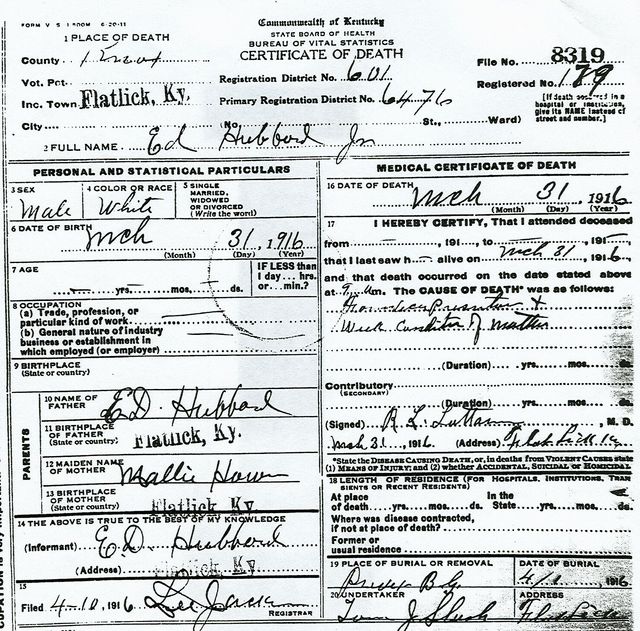 FORM V. S. 1 500M 6-20-11
Commonwealth of Kentucky
STATE BOARD OF HEALTH
BUREAU OF VITAL STATISTICS
CERTIFICATE OF DEATH
1 PLACE OF DEATH
County Knox
Vot. Pct.
Inc. Town Flatlick, Ky.
City
Registration District No. 601
Primary Registration District No. 6476
File No. 8319
Registered No. 189
(No. St., Ward)
[If death occurred in a hospital or institution, give its NAME instead of street and number.]
2 FULL NAME Ed Hubbard Jr
PERSONAL AND STATISTICAL PARTICULARS
3 SEX Male
4 COLOR OR RACE White
5 SINGLE MARRIED, WIDOWED OR DIVORCED (Write the word)
6 DATE OF BIRTH Mch 31, 1916
(Month) (Day) (Year)
7 AGE yrs. mos. ds.
IF LESS than 1 day...hrs. or...min.?
8 OCCUPATION
(a) Trade, profession, or particular kind of work
(b) General nature of industry business or establishment in which employed (or employer)
9 BIRTHPLACE
(State or country)
PARENTS
10 NAME OF FATHER E.D. Hubbard
11 BIRTHPLACE OF FATHER (State or country) Flatlick, Ky.
12 MAIDEN NAME OF MOTHER Mallie
13 BIRTHPLACE OF MOTHER (State or country) Flatlick, Ky
14 THE ABOVE IS TRUE TO THE BEST OF MY KNOWLEDGE
(Informant) E.D. Hubbard
(Address) Flatlick, Ky.
15
Filed 4-10, 1916
REGISTRAR
MEDICAL CERTIFICATE OF DEATH
16 DATE OF DEATH Mch 31, 1916
(Month) (Day) (Year)
17 I HEREBY CERTIFY, That I attended deceased
from 191 to 191
that I last saw h alive on Mch 31 1916,
and that death occurred on the date stated above
at m. The CAUSE OF DEATH* was as follows:
Weak condition of mother
(Duration) yrs. mos. ds.
Contributory
(SECONDARY)
(Duration) yrs. mos. ds.
(Signed) R. L. M. D.
Mch 31, 1916 (Address) Flat Lick Ky
*State the DISEASE CAUSING DEATH, or, in deaths from VIOLENT CAUSES state
(1) MEANS OF INJURY; and (2) whether ACCIDENTAL, SUICIDAL or HOMICIDAL
18 LENGTH OF RESIDENCE (FOR HOSPITALS, INSTITUTIONS, TRANSIENTS OR RECENT RESIDENTS)
At place of death yrs. mos. ds. In the State yrs. mos. ds.
Where was disease contracted, if not at place of death?
Former or usual residence
19 PLACE OF BURIAL OR REMOVAL
DATE OF BURIAL 4/1, 1916
20 UNDERTAKER
ADDRESS Flat Lick